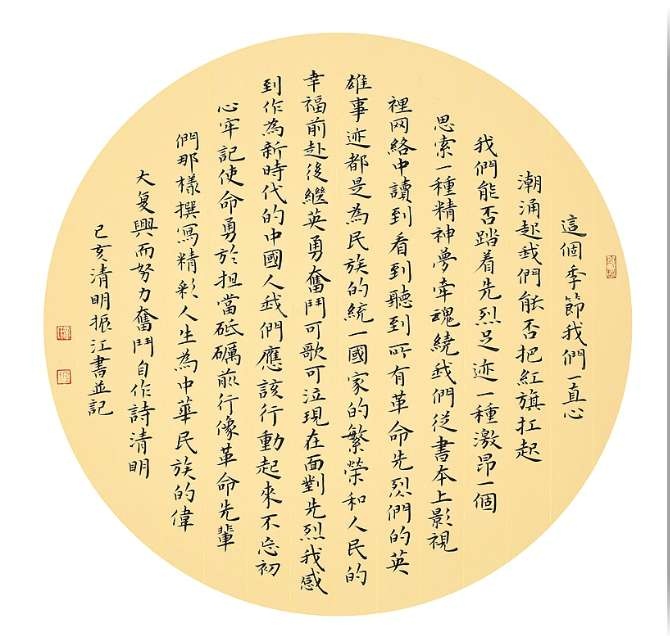 這個季節我們一直心
潮涌起我們能否把紅旗扛起
我們能否踏着先烈足迹一種激昂一個
思索一種精神夢牽魂繞我們從書本上影視
裡网絡中讀到看到聽到所有革命先烈們的英
雄事迹都是為民族的統一國家的繁榮和人民的
幸福前赴後繼英勇奮鬥可歌可泣現在面對先烈我感
到作為新時代的中國人我們應該行動起來不忘初
心牢記使命勇於担當砥礪前行像革命先輩
們那樣撰寫精彩人生為中華民族的偉
大复興而努力奮鬥自作詩清明
己亥清明振江書並記